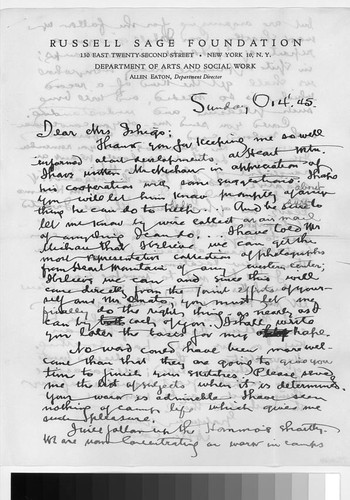 RUSSELL SAGE FOUNDATION
130 EAST TWENTY-SECOND STREET • NEW YORK 10, N.Y.
DEPARTMENT OF ARTS AND SOCIAL WORK
ALLEN EATON, Department Director
Sunday, O14.45.
Dear Mrs Ishigo;
Thank you for keeping me so well
informed about developments at Heart Mtn.
I have written in appreciation of
his cooperation with some suggestions. I hope
you will let him know promptly of any
thing he can do to help. And be sure to
let me know wire collect or air mail
of anything I can do. I have told Mr
that I believe we can get the
most representative collection of photographs
from Heart Mountain of any center;
I believe we can and since this will
come directly from the joint efforts of your-
self and Mr you must let me
finally do the right thing as nearly as I
can by both of you. I shall write
you later the basis for my hope.
No word could have been more wel-
come than that they are going to give you
time to finish your sketches. Please send
me the list of subjects when it is determined.
Your work is admirable. I have seen
nothing of camp life which gives me
such pleasure.
I will follow up the shortly.
We are now concentrating on work in camps